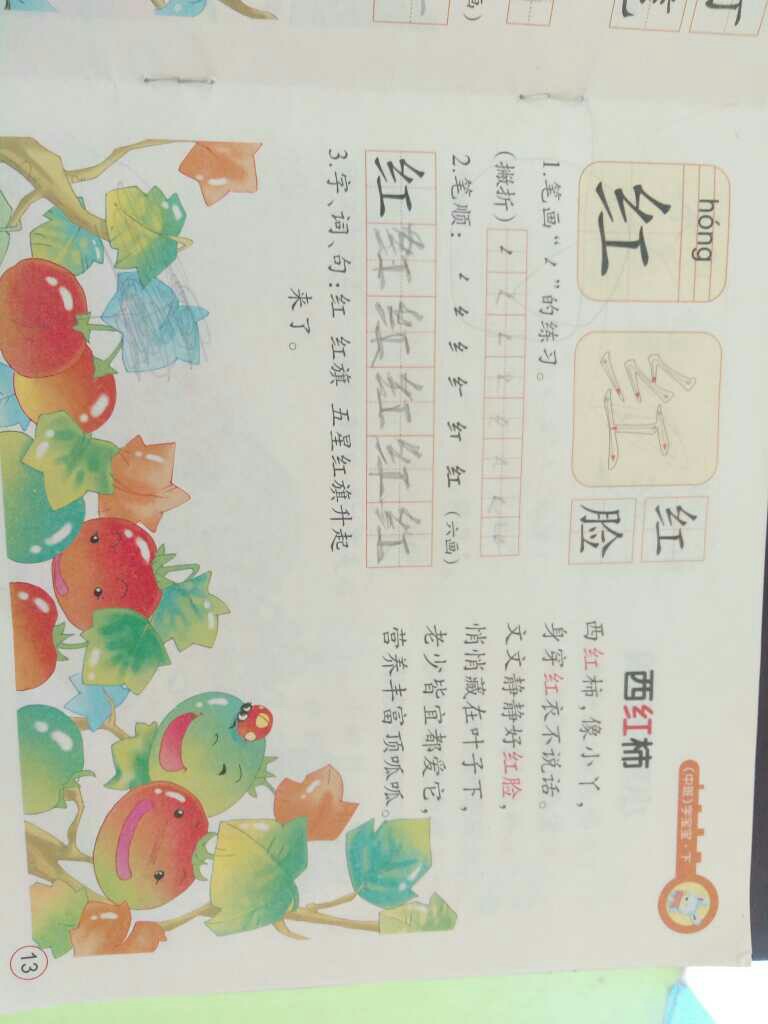 (中班)字宝宝·下
hóng
红
红
红
脸
1.笔画“𠃋”的练习。
(撇折)
2.笔顺:
红
(六画)
红 红 红 红 红 红
3.字、词、句:红 红旗 五星红旗升起
来了。
西红柿
西红柿,像小丫,
身穿红衣不说话。
文文静静好红脸,
悄悄藏在叶子下,
老少皆宜都爱它,
营养丰富顶呱呱。
13